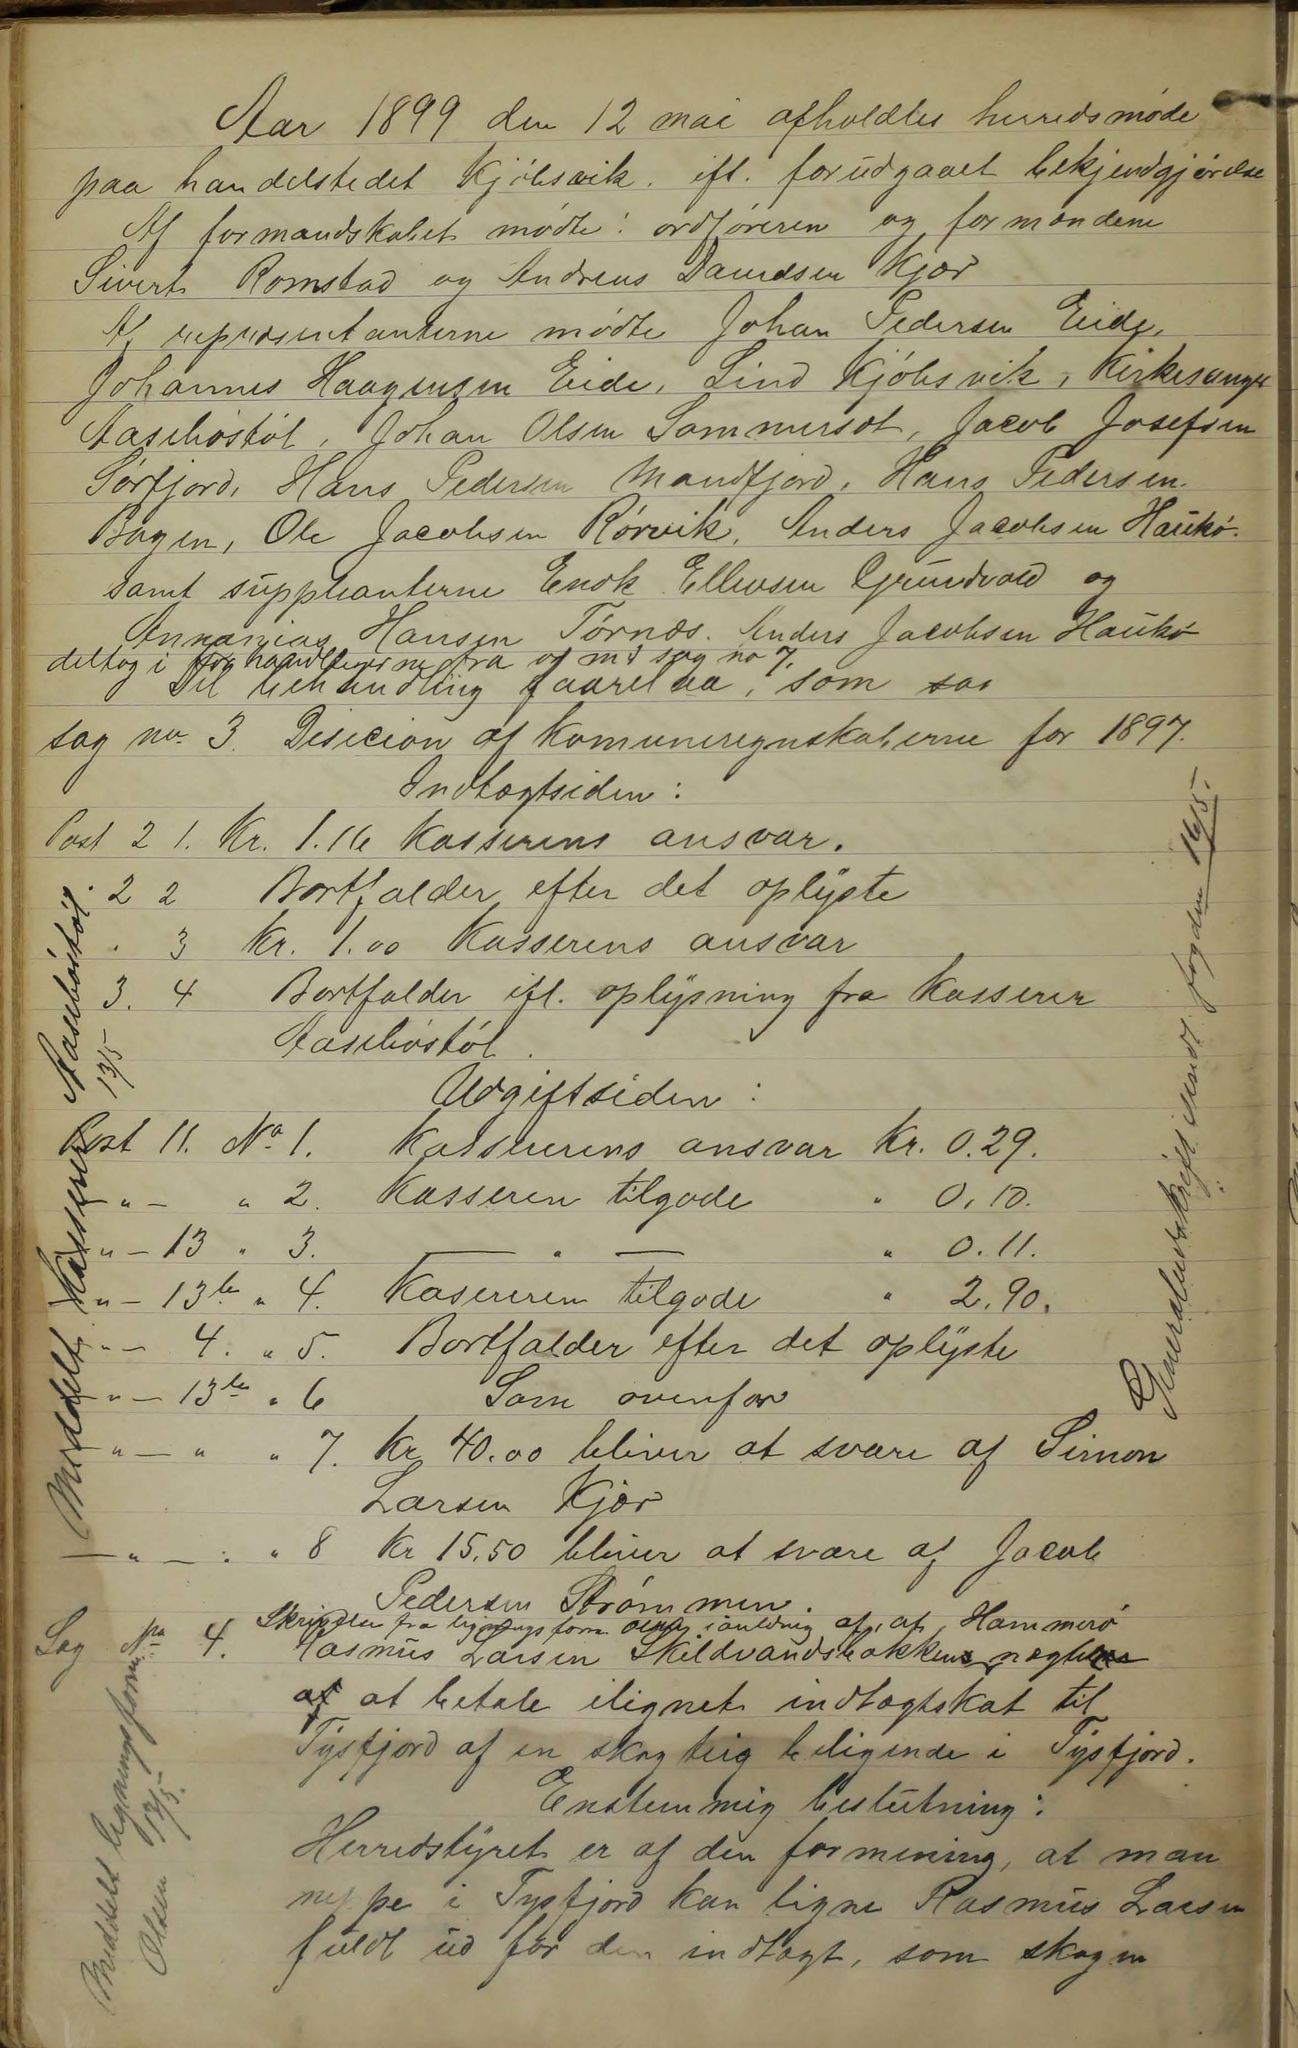 Aar 1899 den 12 mai afholdtes herredsmøde
paa handelstedet Kjöbsvik. ifl. forudgaaet bekjendtgjörelse
Af formandskabet mødte: ordføreren og formændene
Sivert Romstad og Andreas Davidsen Kjær
Af repræsentanterne mødte Johan Pedersen Eide,
Johannes Haagensen Eide, Lind Kjöbsvik, Kirkesanger
Aasebøstöl, Johan Olsen Sommerset, Jacob Josefsen
Sørfjord, Hans Pedersen Mandfjord, Hans Pedersen
Bogen, Ole Jacobsen Rørvik, Anders Jacobsen Haukö.
samt suppleanterne Enok Ellevsen Grundvold og
Annanias Hansen Tørnæs. Anders Jacobsen Haukö
deltog i forhandlingerne fra og md sag no 7.
Til behandling foorelaa, som
sag no. 3. Desicion af Komuneregnskaberne for 1897.
Indtægtsiden:
Post 2 1. Kr. 1.16 Kasserens ansvar.
" 2 2 Bortfalder efter det oplyste
" 3 Kr. 1.00 Kasserens ansvar
3. 4 Bortfalder ifl. oplysning fra Kasserer
Aasebøstöl.
Udgiftsiden:
Post 11. No 1. Kassererens ansvar Kr. 0.29.
" - " 2. Kasseren tilgode " 0.10.
" - 13 " 3. — " — " 0.11.
" - 13b " 4. Kasereren tilgode " 2.90.
" - 4. " 5. Bortfalder efter det oplyste
" - 13b " 6 Som ovenfor
" - " " 7. Kr 40.00 bliver at svare af Simon
Larsen Kjær
- " - " " 8 Kr 15.50 bliver at svare af Jacob
Pedersen Strømmen.
Skrivelse fra ligningsform. Olsen i anledning af, at Hammerö
Sag No 4. Rasmus Larsen Skildvandsbakken nægter
at betale ilignet indtægtskat til
Tysfjord af en skogteig beligende i Tysfjord.
Enstemmig beslutning:
Herredstyret er af den formening, at man
neppe i Tysfjord kan ligne Rasmus Larsen
fuldt ud for den indtægt, som skogen
Meddelt Kasserer Aasebøstöl 13/5
Meddelt ligningsform. Olsen 13/5.
Generaludskrift sendt fogden 16/5.